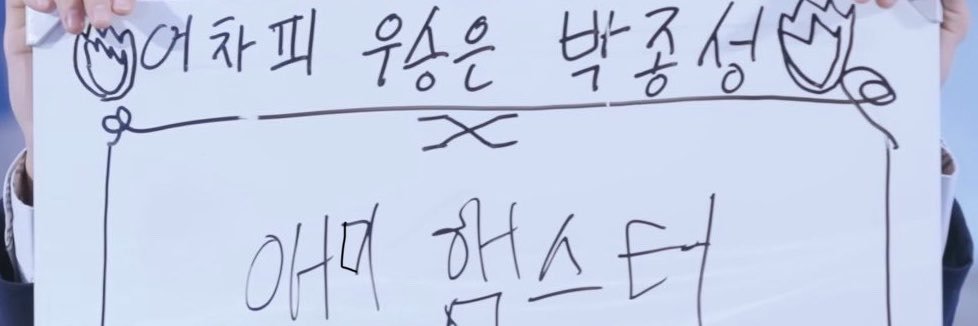 어차피 우승은 박종성
X
애미 햄스터